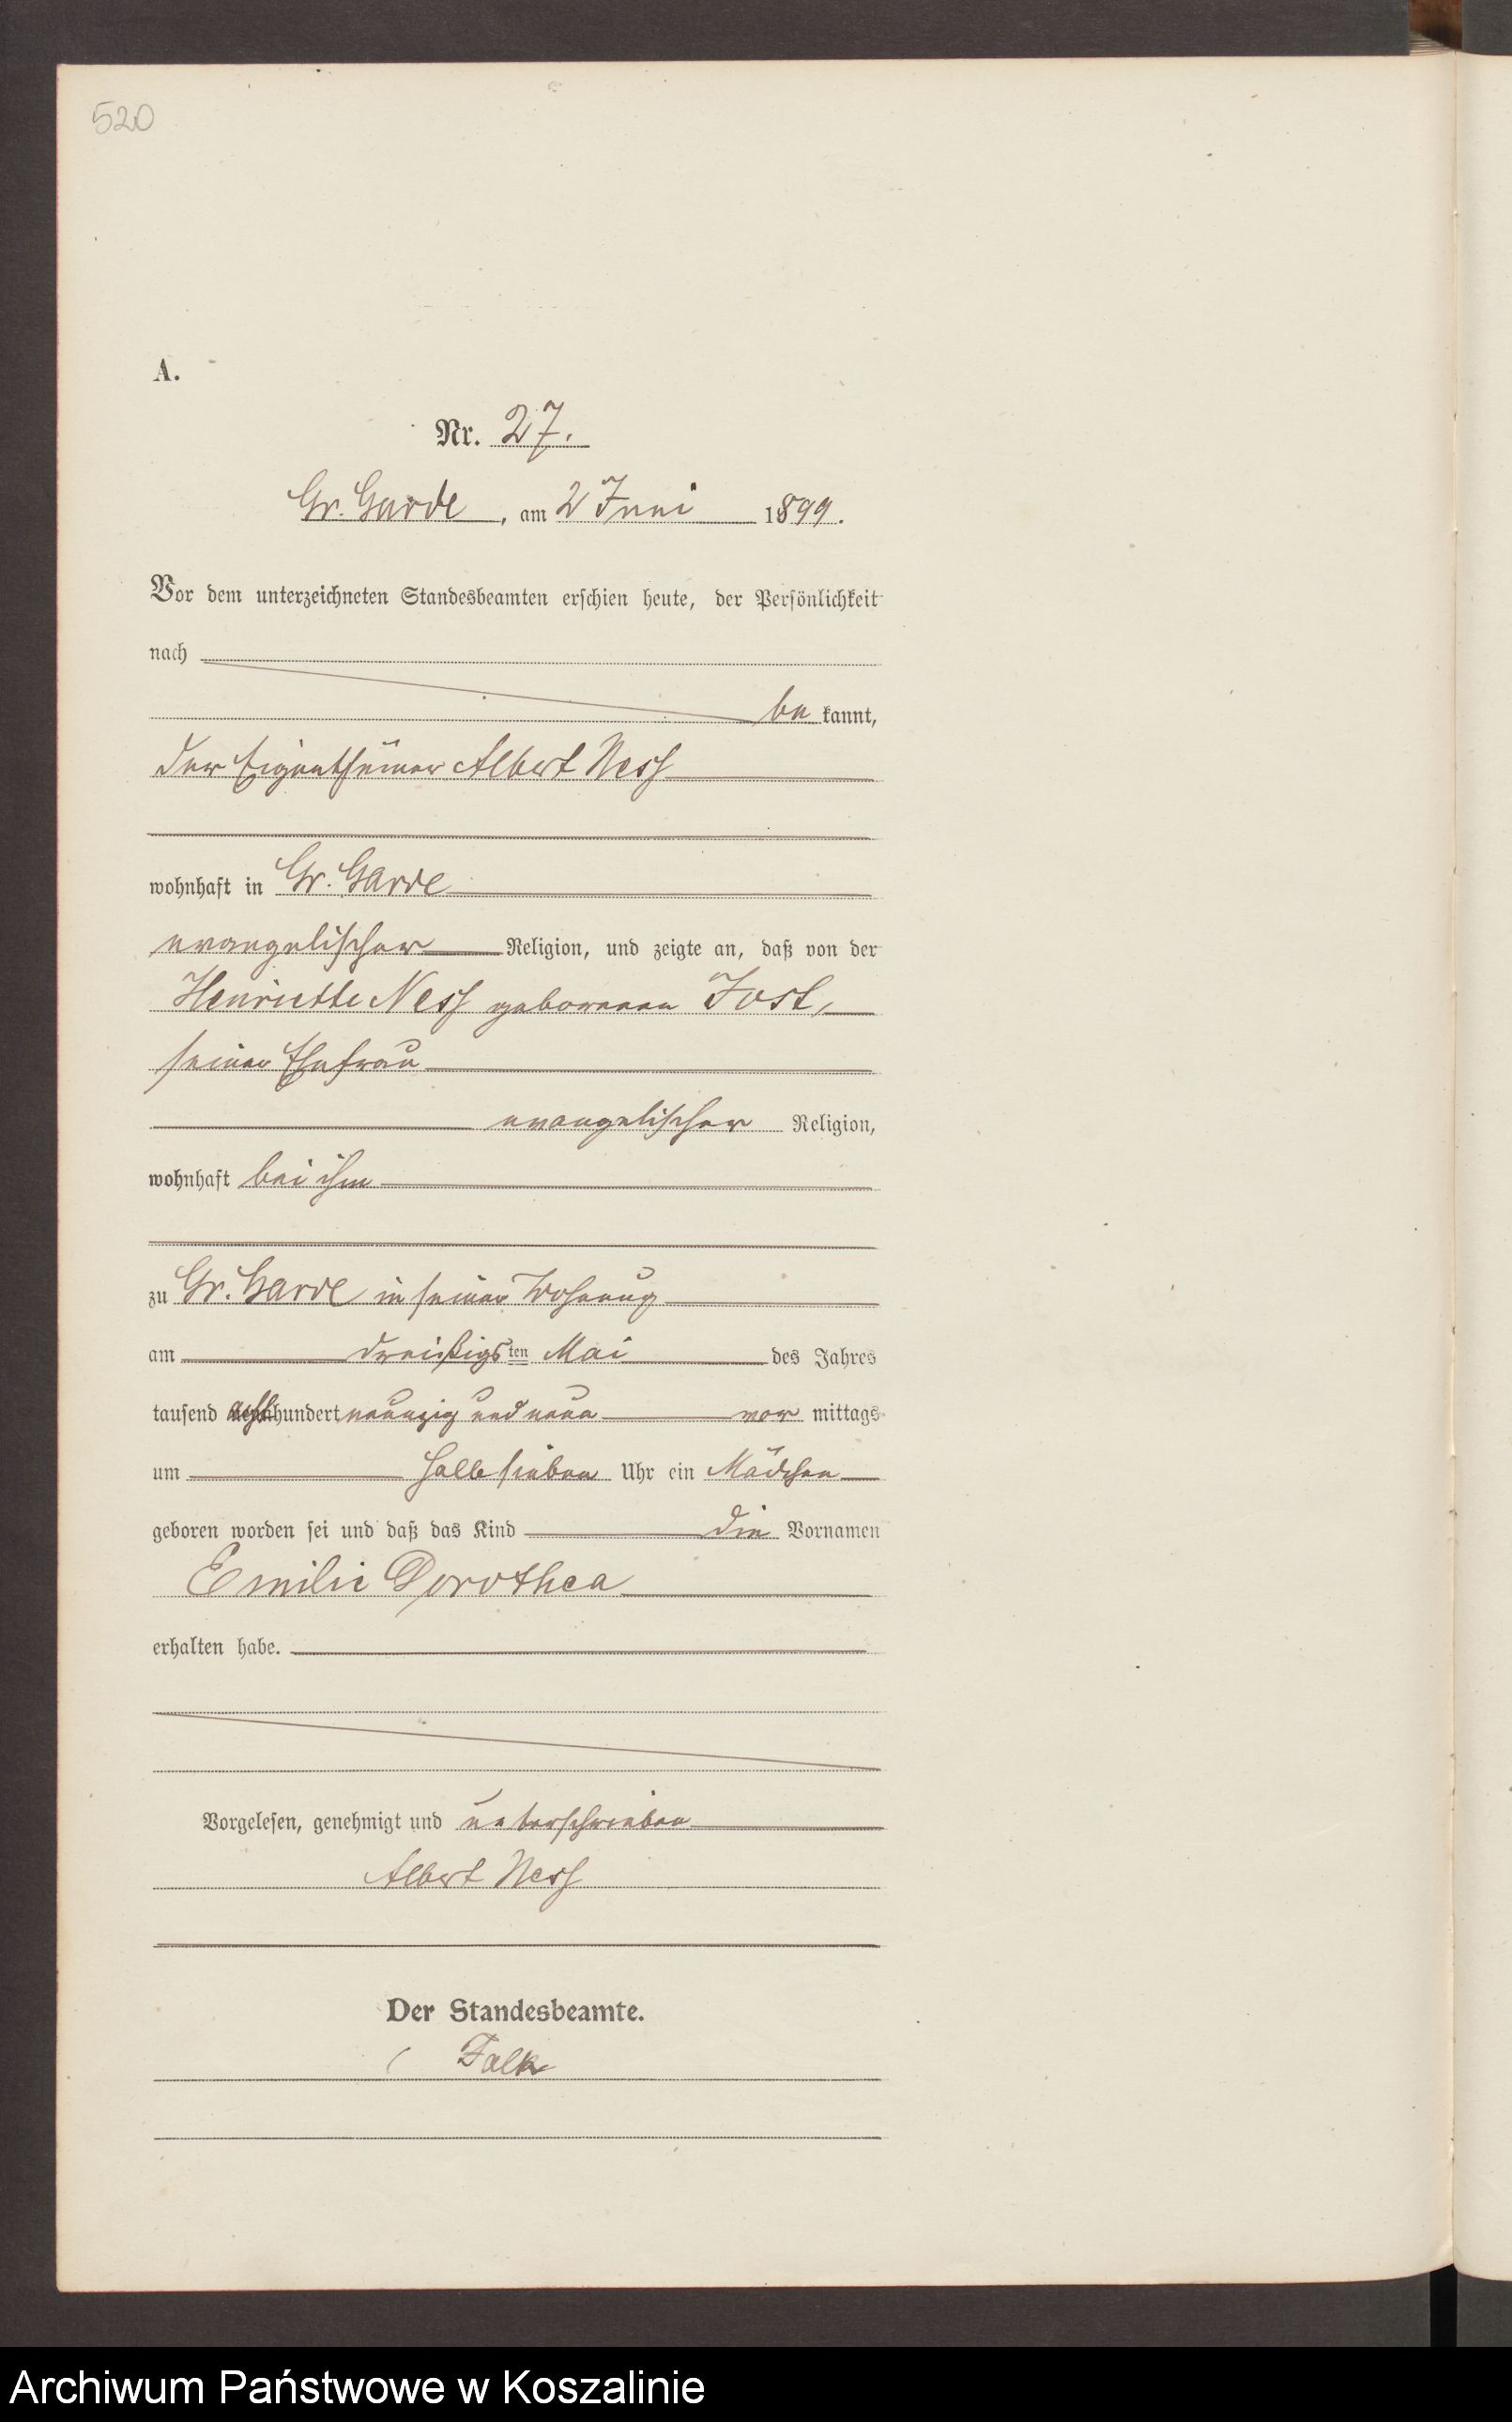 520
A.
Nr. 27.
Gr. Garde, am 2 Juni 1899.
Vor dem unterzeichneten Standesbeamten erschien heute, der Persönlichkeit
nach
be kannt,
der Eigenthümer Albert Ness
wohnhaft in Gr. Garde
evangelischer Religion, und zeigte an, daß von der
Henriette Ness geborenen Jost,
seiner Ehefrau
evangelischer Religion,
wohnhaft bei ihm
zu Gr. Garde in seiner Wohnung
am dreißigsten Mai des Jahres
tausend achthundert neunzig und neun vor mittags
um halb sieben Uhr ein Mädchen
geboren worden sei und daß das Kind die Vornamen
Emilie Dorothea
erhalten habe.
Vorgelesen, genehmigt und unterschrieben
Albert Ness
Der Standesbeamte.
Falk
Archiwum Państwowe w Koszalinie